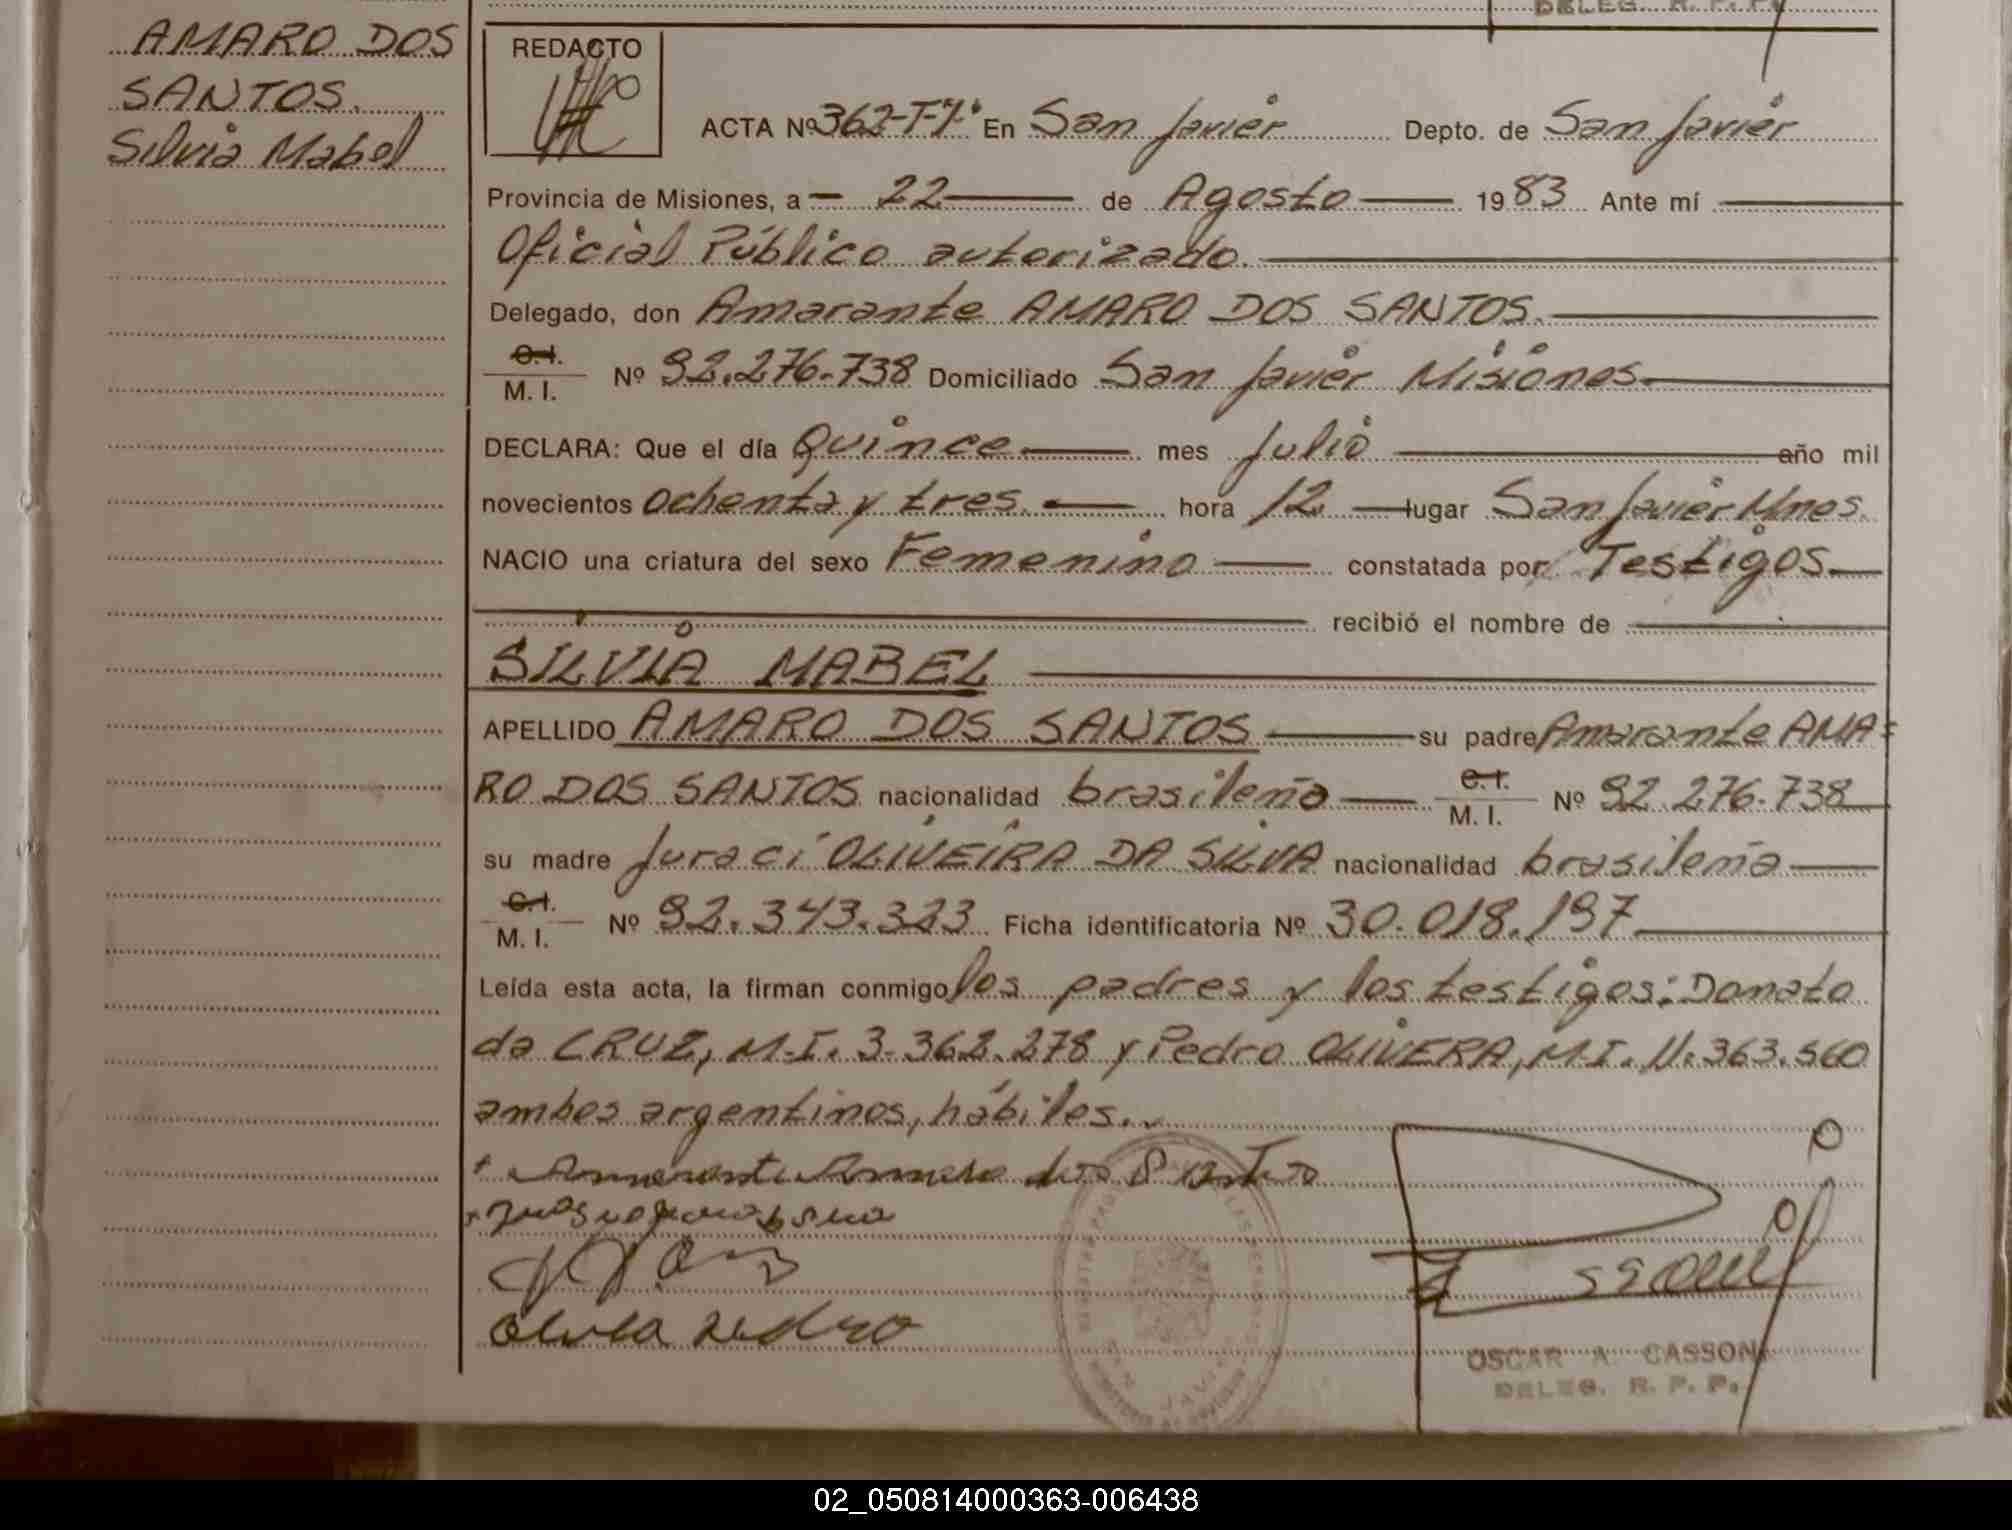 AMARO DOS
SANTOS.
Silvia Mabel
DELEG. R. P. P.
REDACTO
ACTA Nº 362-T-1º En San Javier Depto. de San Javier
Provincia de Misiones, a 22 de Agosto 1983 Ante mí
Oficial Público autorizado.
Delegado, don Amarante AMARO DOS SANTOS.
C.I.
M. I. Nº 92.276.738 Domiciliado San Javier Misiones
DECLARA: Que el día Quince mes Julio año mil
novecientos ochenta y tres. hora 12 lugar San Javier Mnes.
NACIO una criatura del sexo Femenino constatada por Testigos
recibió el nombre de
SILVIA MABEL
APELLIDO AMARO DOS SANTOS su padre Amarante AMA=
RO DOS SANTOS nacionalidad brasileña C.I. M. I. Nº 92.276.738
su madre Juraci OLIVEIRA DA SILVA nacionalidad brasileña
C.I.
M. I. Nº 92.343.323 Ficha identificatoria Nº 30.018.197
Leída esta acta, la firman conmigo los padres y los testigos: Donato
da CRUZ, M.I. 3.362.278 y Pedro OLIVERA, M.I. 11.363.560
ambos argentinos, hábiles..
Amarante Amaro dos Santos
Pedro
OSCAR A. CASSONI
DELEG. R. P. P.
02_050814000363-006438